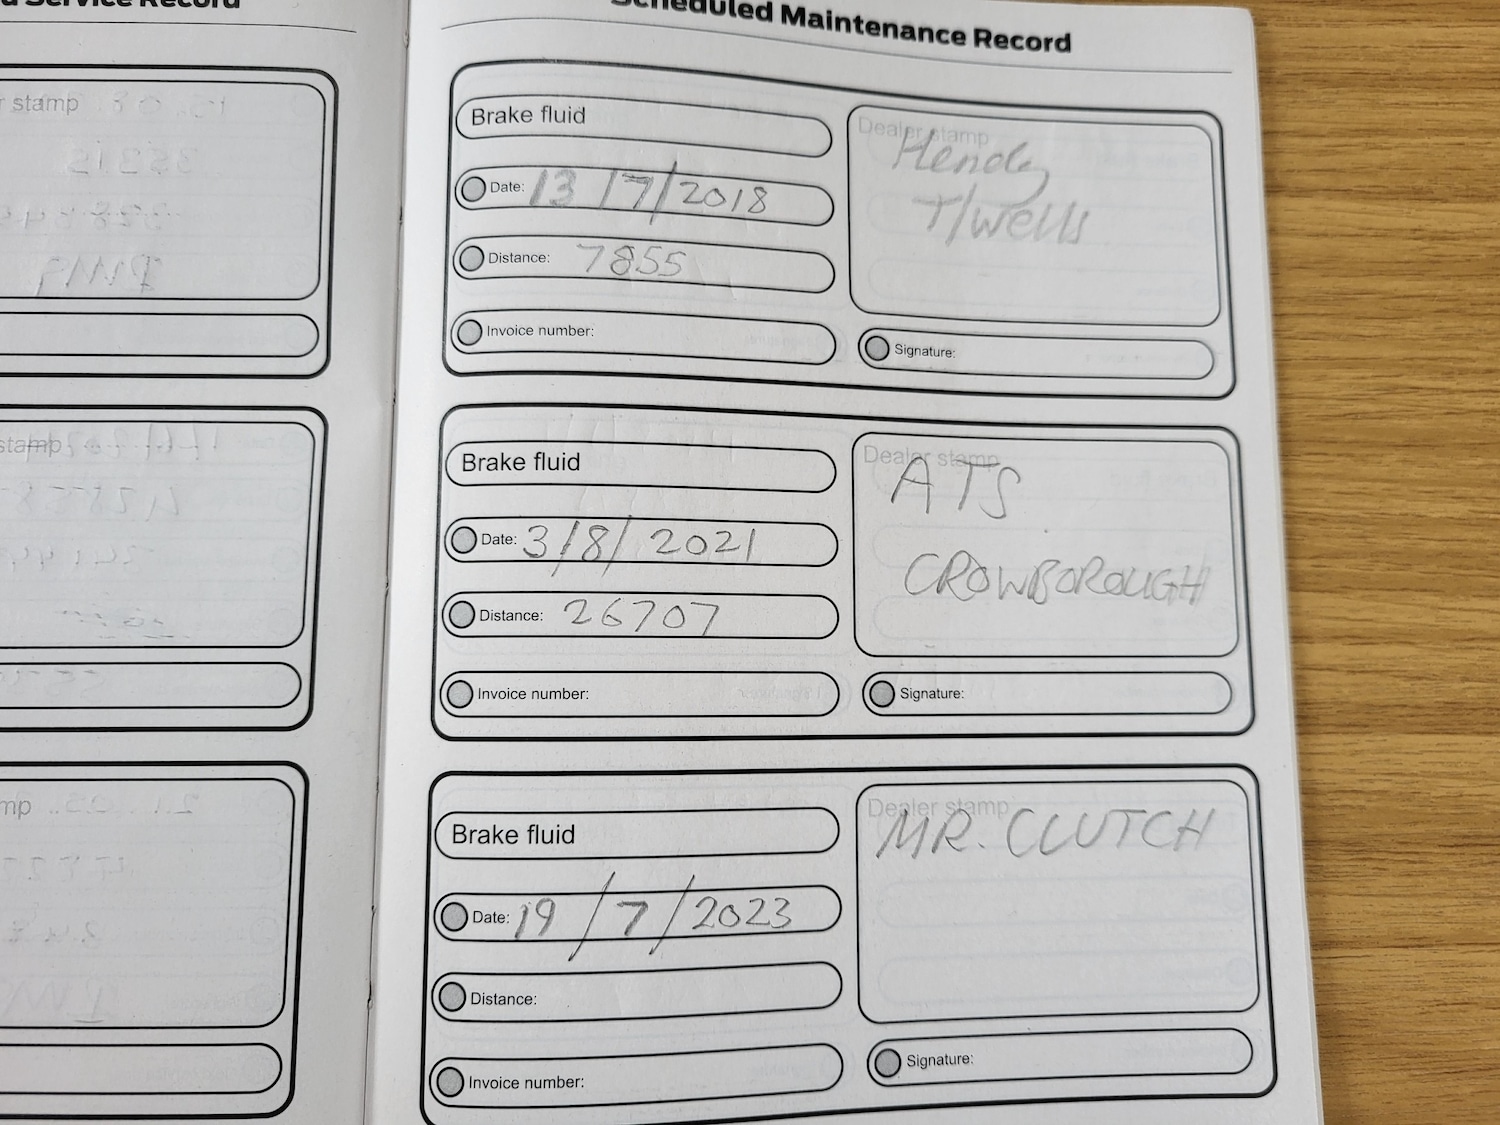 d Service Record
r stamp
stamp
mp
Scheduled Maintenance Record
Brake fluid
Date: 13/7/2018
Distance: 7855
Invoice number:
Dealer stamp
Hendy
T/Wells
Signature:
Brake fluid
Date: 3/8/2021
Distance: 26707
Invoice number:
Dealer stamp
ATS
CROWBOROUGH
Signature:
Brake fluid
Date: 19/7/2023
Distance:
Invoice number:
Dealer stamp
MR. CLUTCH
Signature: